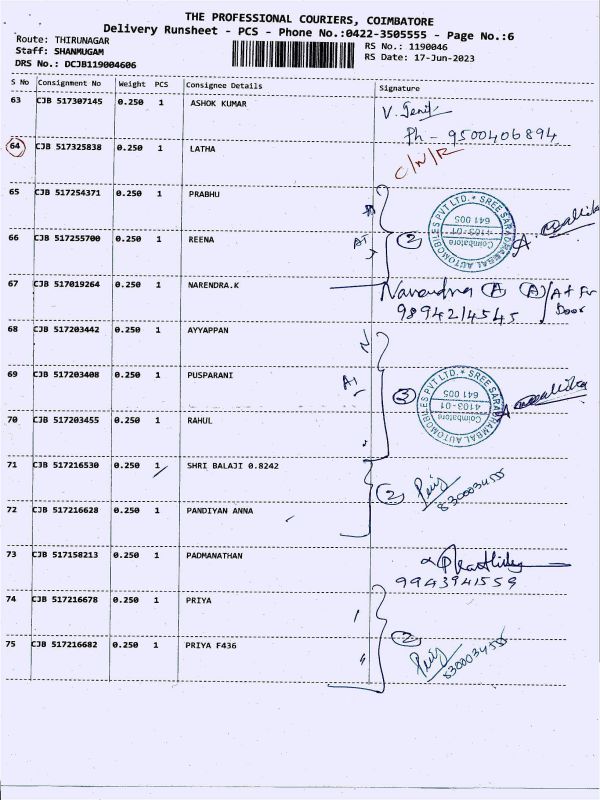 THE PROFESSIONAL COURIERS, COIMBATORE
Delivery Runsheet - PCS - Phone No.:0422-3505555 - Page No.:6
Route: THIRUNAGAR
Staff: SHANMUGAM
DRS No.: DCJB119004606
RS No.: 1190046
RS Date: 17-Jun-2023
S No Consignment No Weight PCS Consignee Details Signature
63 CJB 517307145 0.250 1 ASHOK KUMAR
Ph - 9500406894
64 CJB 517325838 0.250 1 LATHA C/N/R
65 CJB 517254371 0.250 1 PRABHU
66 CJB 517255700 0.250 1 REENA 2
SREE SARADHAMBAL AUTOMOBILES PVT LTD.
4103-01
Coimbatore
641 005
67 CJB 517019264 0.250 1 NARENDRA.K Narendra A A
9894214545 Door
68 CJB 517203442 0.250 1 AYYAPPAN
69 CJB 517203408 0.250 1 PUSPARANI 3
SREE SARADHAMBAL AUTOMOBILES PVT LTD.
4103-01
Coimbatore
641 005
70 CJB 517203455 0.250 1 RAHUL
71 CJB 517216530 0.250 1 SHRI BALAJI 0.8242 2
8300034555
72 CJB 517216628 0.250 1 PANDIYAN ANNA
73 CJB 517158213 0.250 1 PADMANATHAN
9943941559
74 CJB 517216678 0.250 1 PRIYA 2
8300034555
75 CJB 517216682 0.250 1 PRIYA F436